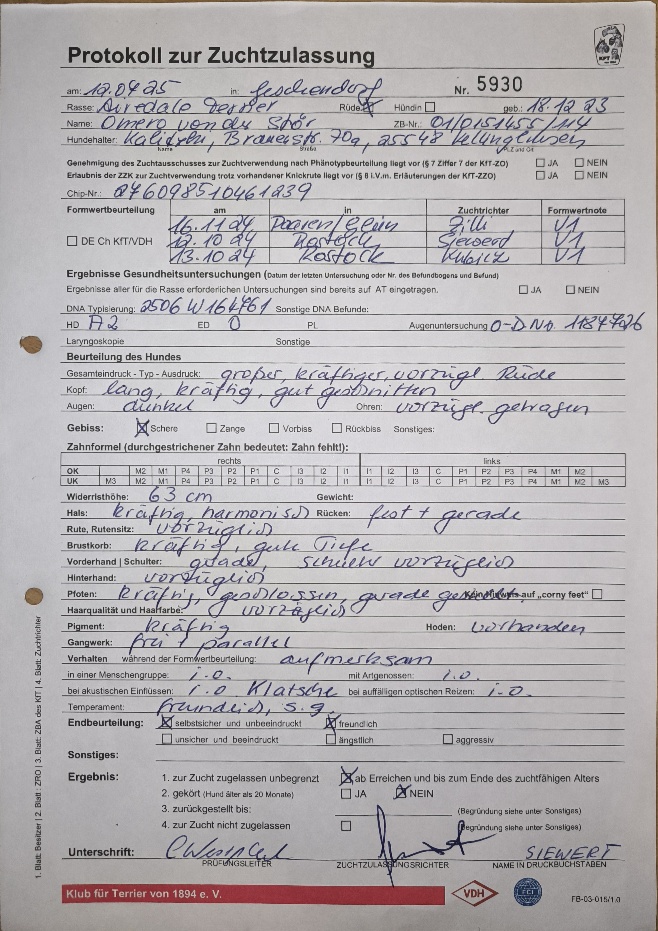 Protokoll zur Zuchtzulassung
KFT
am: 12.04.25 in: Jeschendorf Nr. 5930
Rasse: Airedale Terrier Rüde Hündin geb.: 18.12.23
Name: Omero von der Stör ZB-Nr.: 01/0151455/114
Hundehalter: Brauerstr. 70a, 25548 Kellinghusen
Name Straße PLZ und Ort
Genehmigung des Zuchtausschusses zur Zuchtverwendung nach Phänotypbeurteilung liegt vor (§ 7 Ziffer 7 der KfT-ZO) JA NEIN
Erlaubnis der ZZK zur Zuchtverwendung trotz vorhandener Knickrute liegt vor (§ 8 i.V.m. Erläuterungen der KfT-ZZO) JA NEIN
Chip-Nr.: 276098510461239
Formwertbeurteilung am in Zuchtrichter Formwertnote
16.11.24 Paaren/Glien Zilli V1
DE Ch KfT/VDH 12.10.24 Rostock Siewerd V1
13.10.24 Rostock Kubitz V1
Ergebnisse Gesundheitsuntersuchungen (Datum der letzten Untersuchung oder Nr. des Befundbogens und Befund)
Ergebnisse aller für die Rasse erforderlichen Untersuchungen sind bereits auf AT eingetragen. JA NEIN
DNA Typisierung: 2506 W 164761 Sonstige DNA Befunde:
HD A2 ED 0 PL Augenuntersuchung O-D No. 1184726
Laryngoskopie Sonstige
Beurteilung des Hundes
Gesamteindruck - Typ - Ausdruck: großer, kräftiger, vorzügl. Rüde
Kopf: lang, kräftig, gut geschnitten
Augen: dunkel Ohren: vorzügl. getragen
Gebiss: Schere Zange Vorbiss Rückbiss Sonstiges:
Zahnformel (durchgestrichener Zahn bedeutet: Zahn fehlt!):
rechts links
OK M2 M1 P4 P3 P2 P1 C I3 I2 I1 I1 I2 I3 C P1 P2 P3 P4 M1 M2
UK M3 M2 M1 P4 P3 P2 P1 C I3 I2 I1 I1 I2 I3 C P1 P2 P3 P4 M1 M2 M3
Widerristhöhe: 63 cm Gewicht:
Hals: kräftig, harmonisch Rücken: fest + gerade
Rute, Rutensitz: vorzüglich
Brustkorb: kräftig, gute Tiefe
Vorderhand | Schulter: gerade, Schulter vorzüglich
Hinterhand: vorzüglich
Pfoten: kräftig, geschlossen, gerade Kein Hinweis auf „corny feet“
Haarqualität und Haarfarbe: vorzüglich
Pigment: kräftig Hoden: vorhanden
Gangwerk: frei + parallel
Verhalten während der Formwertbeurteilung: aufmerksam
in einer Menschengruppe: i.o. mit Artgenossen: i.o.
bei akustischen Einflüssen: i.o Klatsche bei auffälligen optischen Reizen: i-o.
Temperament: freundlich, s.g.
Endbeurteilung: selbstsicher und unbeeindruckt freundlich
unsicher und beeindruckt ängstlich aggressiv
Sonstiges:
Ergebnis: 1. zur Zucht zugelassen unbegrenzt ab Erreichen und bis zum Ende des zuchtfähigen Alters
2. gekört (Hund älter als 20 Monate) JA NEIN
3. zurückgestellt bis: (Begründung siehe unter Sonstiges)
4. zur Zucht nicht zugelassen (Begründung siehe unter Sonstiges)
Unterschrift: SIEWERT
PRÜFUNGSLEITER ZUCHTZULASSUNGSRICHTER NAME IN DRUCKBUCHSTABEN
Klub für Terrier von 1894 e. V. VDH FCI FB-03-015/1.0
1. Blatt: Besitzer | 2. Blatt: ZRO | 3. Blatt: ZBA des KfT | 4. Blatt: Zuchtrichter